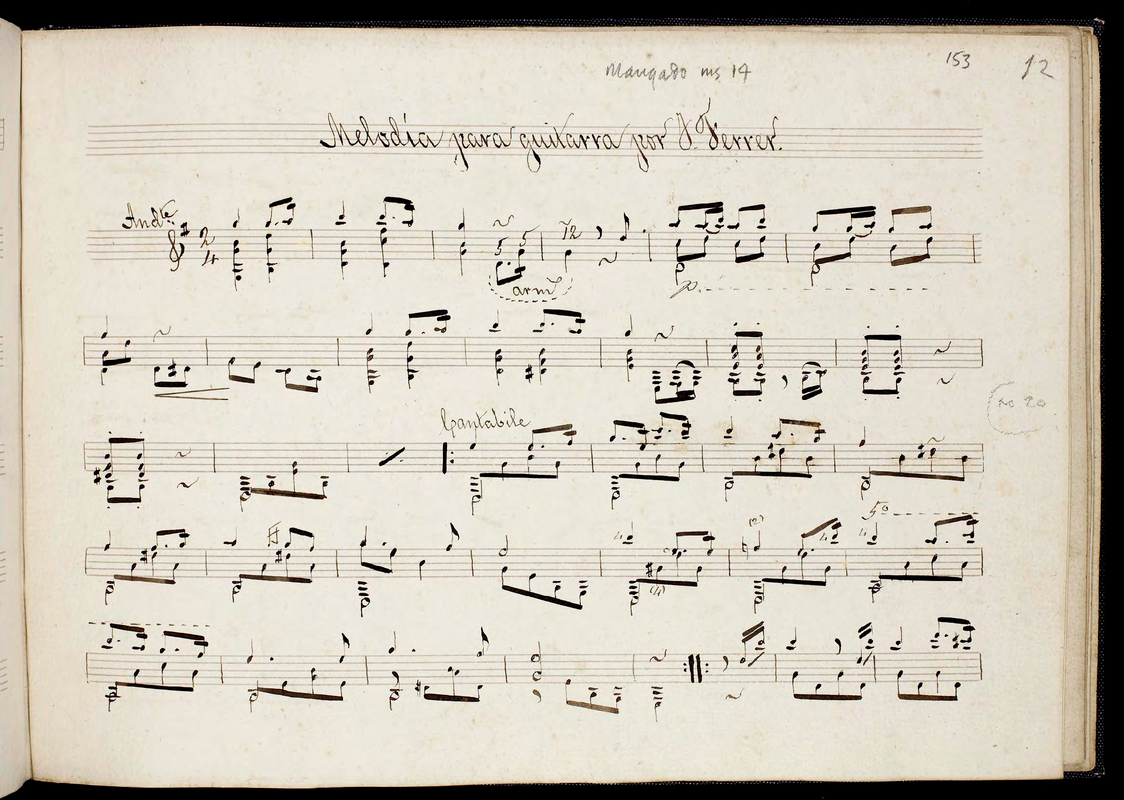 Mangado ms 14
153
12
Melodía para guitarra por J. Ferrer.
Andte
2
4
5 5 12
arm
p.
Cantabile
5ª
4 (2) 4 4
(4)